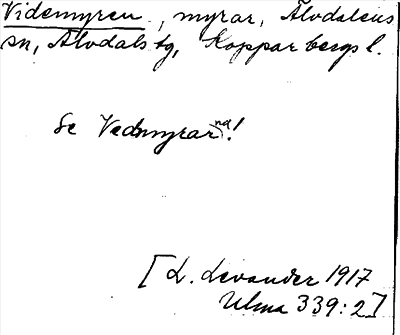 Videmyren, myrar, Älvdalens
sn, Älvdals tg, Kopparbergs l.
Se Vedmyrarna!
[L. Levander 1917
Ulma 339:2]